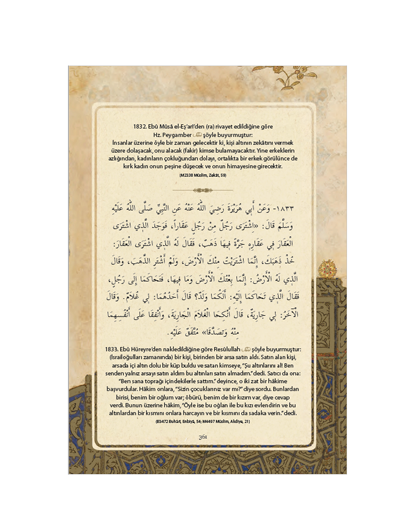 1832. Ebû Mûsâ el-Eş'arî'den (ra) rivayet edildiğine göre
Hz. Peygamber ﷺ şöyle buyurmuştur:
İnsanlar üzerine öyle bir zaman gelecektir ki, kişi altının zekâtını vermek
üzere dolaşacak, onu alacak (fakir) kimse bulamayacaktır. Yine erkeklerin
azlığından, kadınların çokluğundan dolayı, ortalıkta bir erkek görülünce de
kırk kadın onun peşine düşecek ve onun himayesine girecektir.
(M2338 Müslim, Zekât, 59)
١٨٣٣- وَعَنْ أَبِي هُرَيْرَةَ رَضِيَ اللَّهُ عَنْهُ عَنِ النَّبِيِّ صَلَّى اللَّهُ عَلَيْهِ
وَسَلَّمَ قَالَ: «اشْتَرَى رَجُلٌ مِنْ رَجُلٍ عَقَاراً، فَوَجَدَ الَّذِي اشْتَرَى
الْعَقَارَ فِي عَقَارِهِ جَرَّةً فِيهَا ذَهَبٌ، فَقَالَ لَهُ الَّذِي اشْتَرَى الْعَقَارَ:
خُذْ ذَهَبَكَ، إِنَّمَا اشْتَرَيْتُ مِنْكَ الْأَرْضَ، وَلَمْ أَشْتَرِ الذَّهَبَ، وَقَالَ
الَّذِي لَهُ الْأَرْضُ: إِنَّمَا بِعْتُكَ الْأَرْضَ وَمَا فِيهَا، فَتَحَاكَمَا إِلَى رَجُلٍ،
فَقَالَ الَّذِي تَحَاكَمَا إِلَيْهِ: أَلَكُمَا وَلَدٌ؟ قَالَ أَحَدُهُمَا: لِي غُلَامٌ. وَقَالَ
الْآخَرُ: لِي جَارِيَةٌ، قَالَ أَنْكِحَا الْغُلَامَ الْجَارِيَةَ، وَأَنْفِقَا عَلَى أَنْفُسِهِمَا
مِنْهُ وَتَصَدَّقَا» مُتَّفَقٌ عَلَيْهِ.
1833. Ebû Hüreyre'den nakledildiğine göre Resûlullah ﷺ şöyle buyurmuştur:
(İsrailoğulları zamanında) bir kişi, birinden bir arsa satın aldı. Satın alan kişi,
arsada içi altın dolu bir küp buldu ve satan kimseye, "Şu altınlarını al! Ben
senden yalnız arsayı satın aldım bu altınları satın almadım." dedi. Satıcı da ona:
"Ben sana toprağı içindekilerle sattım." deyince, o iki zat bir hâkime
başvurdular. Hâkim onlara, "Sizin çocuklarınız var mı?" diye sordu. Bunlardan
birisi, benim bir oğlum var; öbürü, benim de bir kızım var, diye cevap
verdi. Bunun üzerine hâkim, "Öyle ise bu oğlan ile bu kızı evlendirin ve bu
altınlardan bir kısmını onlara harcayın ve bir kısmını da sadaka verin." dedi.
(B3472 Buhârî, Enbiyâ, 54; M4497 Müslim, Akdiye, 21)